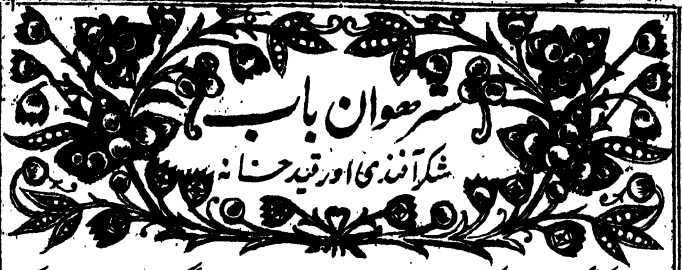 سترھواں باب
شکر آفندی اور قید خانہ